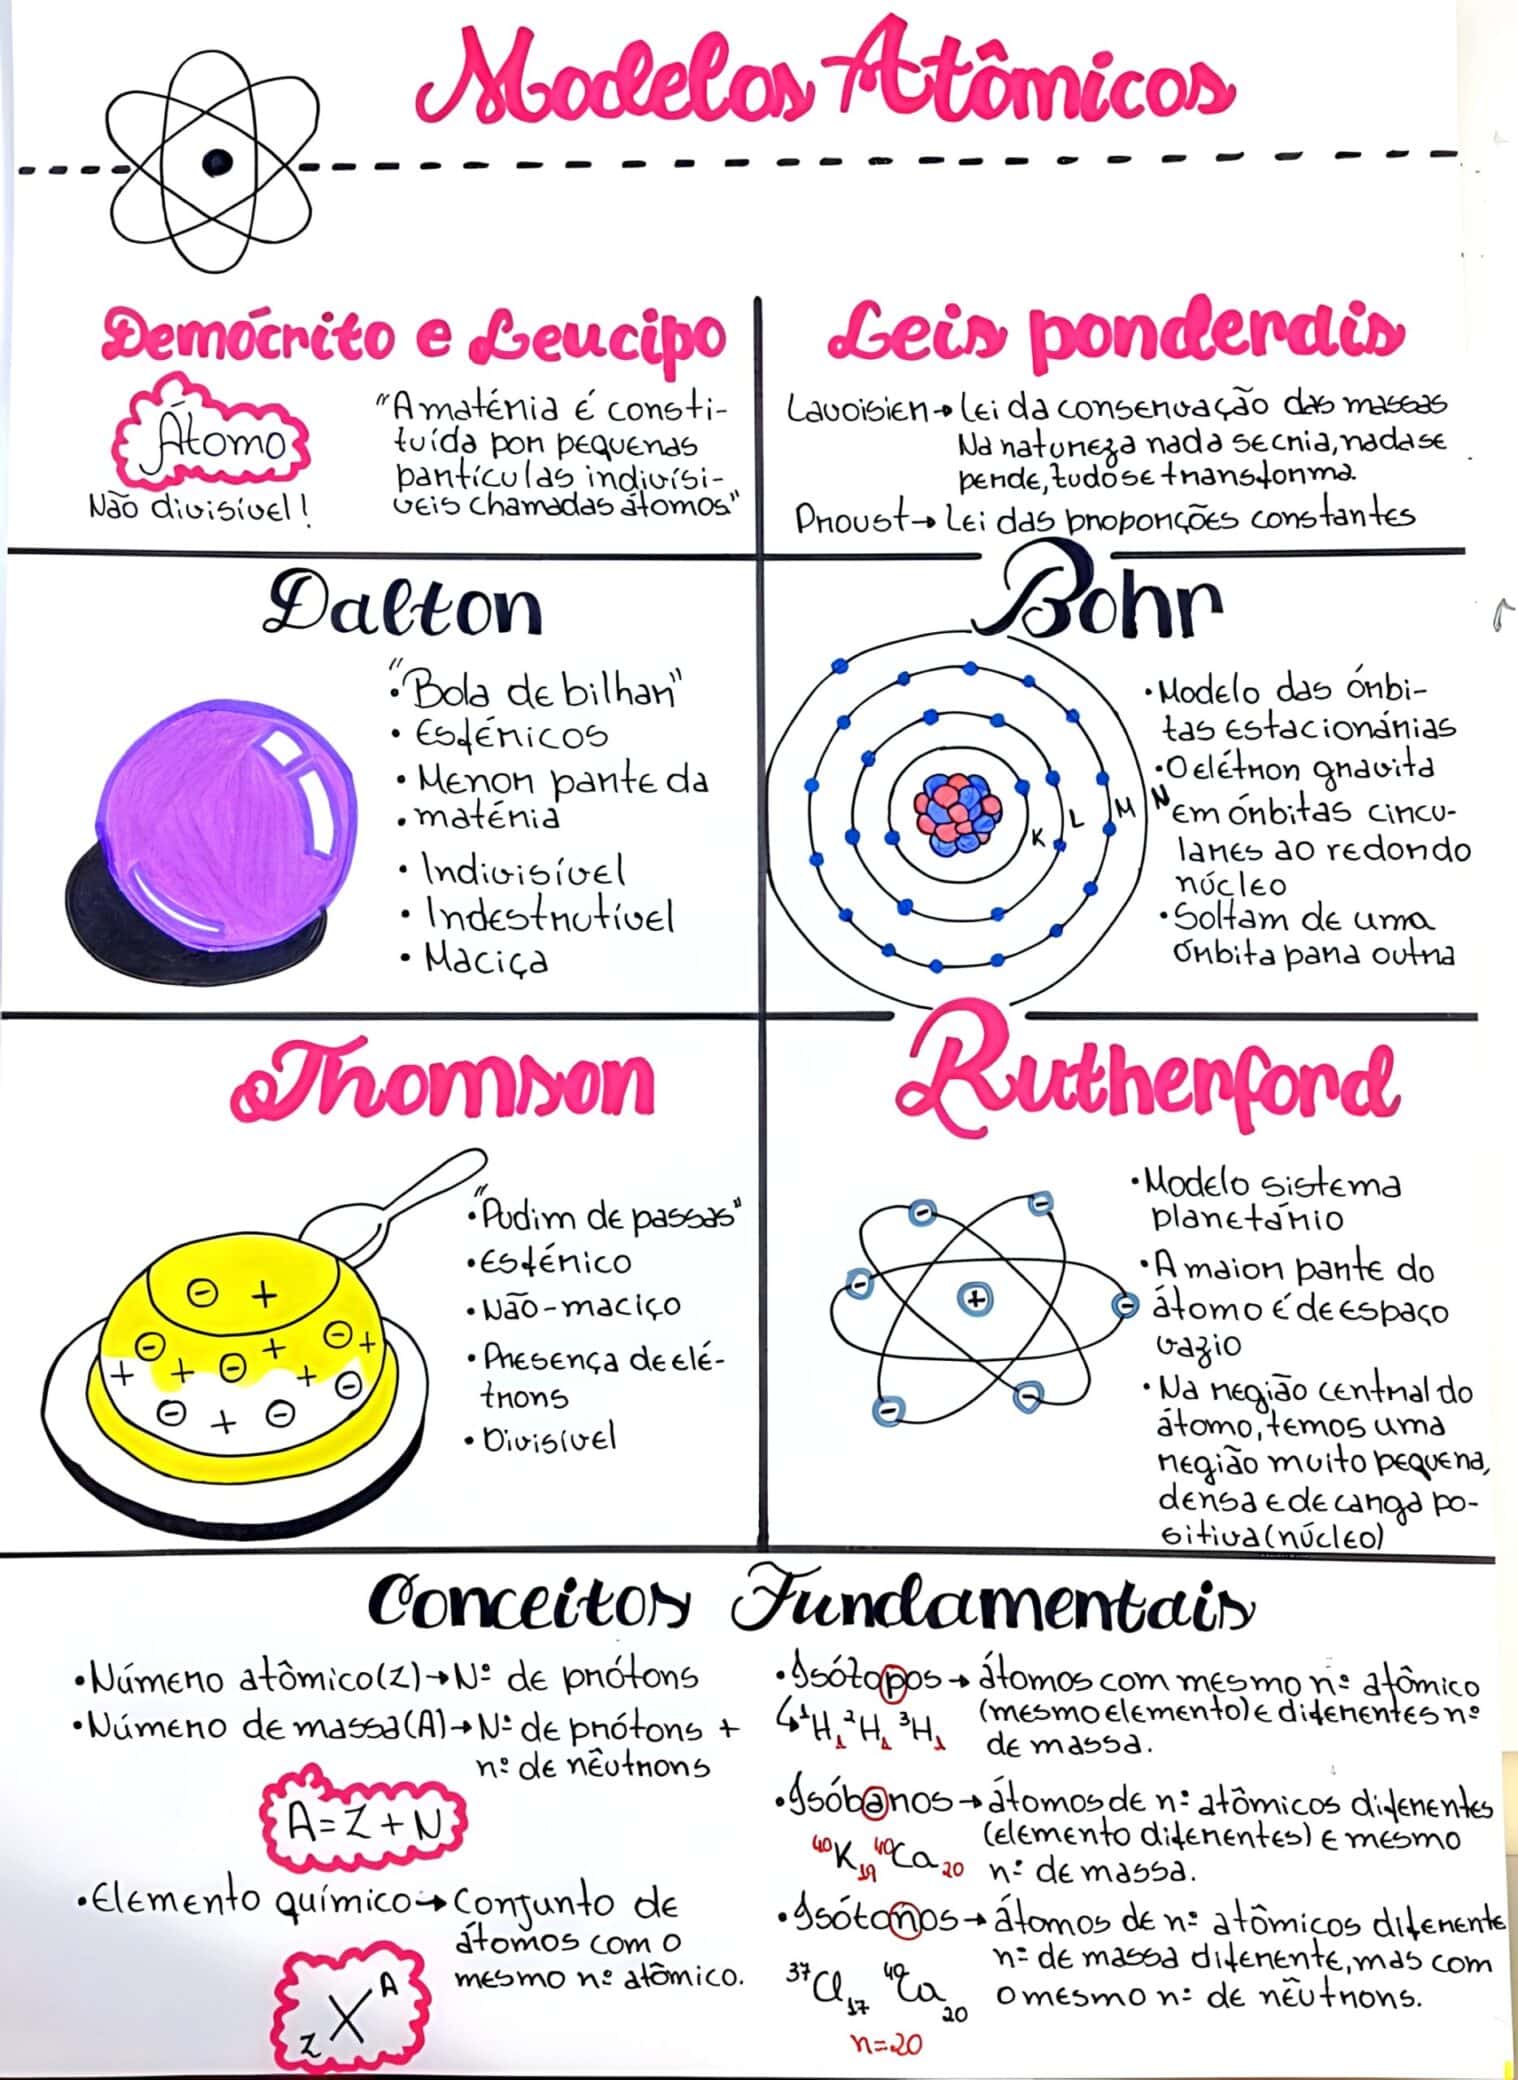 Modelos Atômicos
Demócrito e Leucipo
Átomo
Não divisível!
"A matéria é consti-
tuída por pequenas
partículas indivisí-
veis chamadas átomos"
Leis ponderais
Lavoisier→Lei da conservação das massas
Na natureza nada se cria, nada se
perde, tudo se transforma.
Proust→Lei das proporções constantes
Dalton
• "Bola de bilhar"
• Esféricos
• Menor parte da
• matéria
• Indivisível
• Indestrutível
• Maciça
Bohr
K L M N
• Modelo das órbi-
tas estacionárias
• O elétron gravita
em órbitas circu-
lares ao redondo
núcleo
• Soltam de uma
órbita para outra
Thomson
⊖ +
⊖ + ⊖ +
+ + ⊖ + ⊖
⊖ + ⊖
• "Pudim de passas"
• Esférico
• Não-maciço
• Presença de elé-
trons
• Divisível
Rutherford
- -
- + -
- -
• Modelo sistema
planetário
• A maior parte do
átomo é de espaço
vazio
• Na região central do
átomo, temos uma
região muito pequena,
densa e de carga po-
sitiva (núcleo)
Conceitos Fundamentais
• Número atômico(Z)→Nº de prótons
• Número de massa(A)→Nº de prótons +
nº de nêutrons
A=Z+N
• Elemento químico→Conjunto de
átomos com o
mesmo nº atômico.
zXᴬ
• Isótopos→átomos com mesmo nº atômico
(mesmo elemento) e diferentes nº
de massa.
↳¹H₁ ²H₁ ³H₁
• Isóbaros→átomos de nº atômicos diferentes
(elemento diferentes) e mesmo
nº de massa.
⁴⁰K₁₉ ⁴⁰Ca₂₀
• Isótonos→átomos de nº atômicos diferente
nº de massa diferente, mas com
o mesmo nº de nêutrons.
³⁷Cl₁₇ ⁴⁰Ca₂₀
n=20